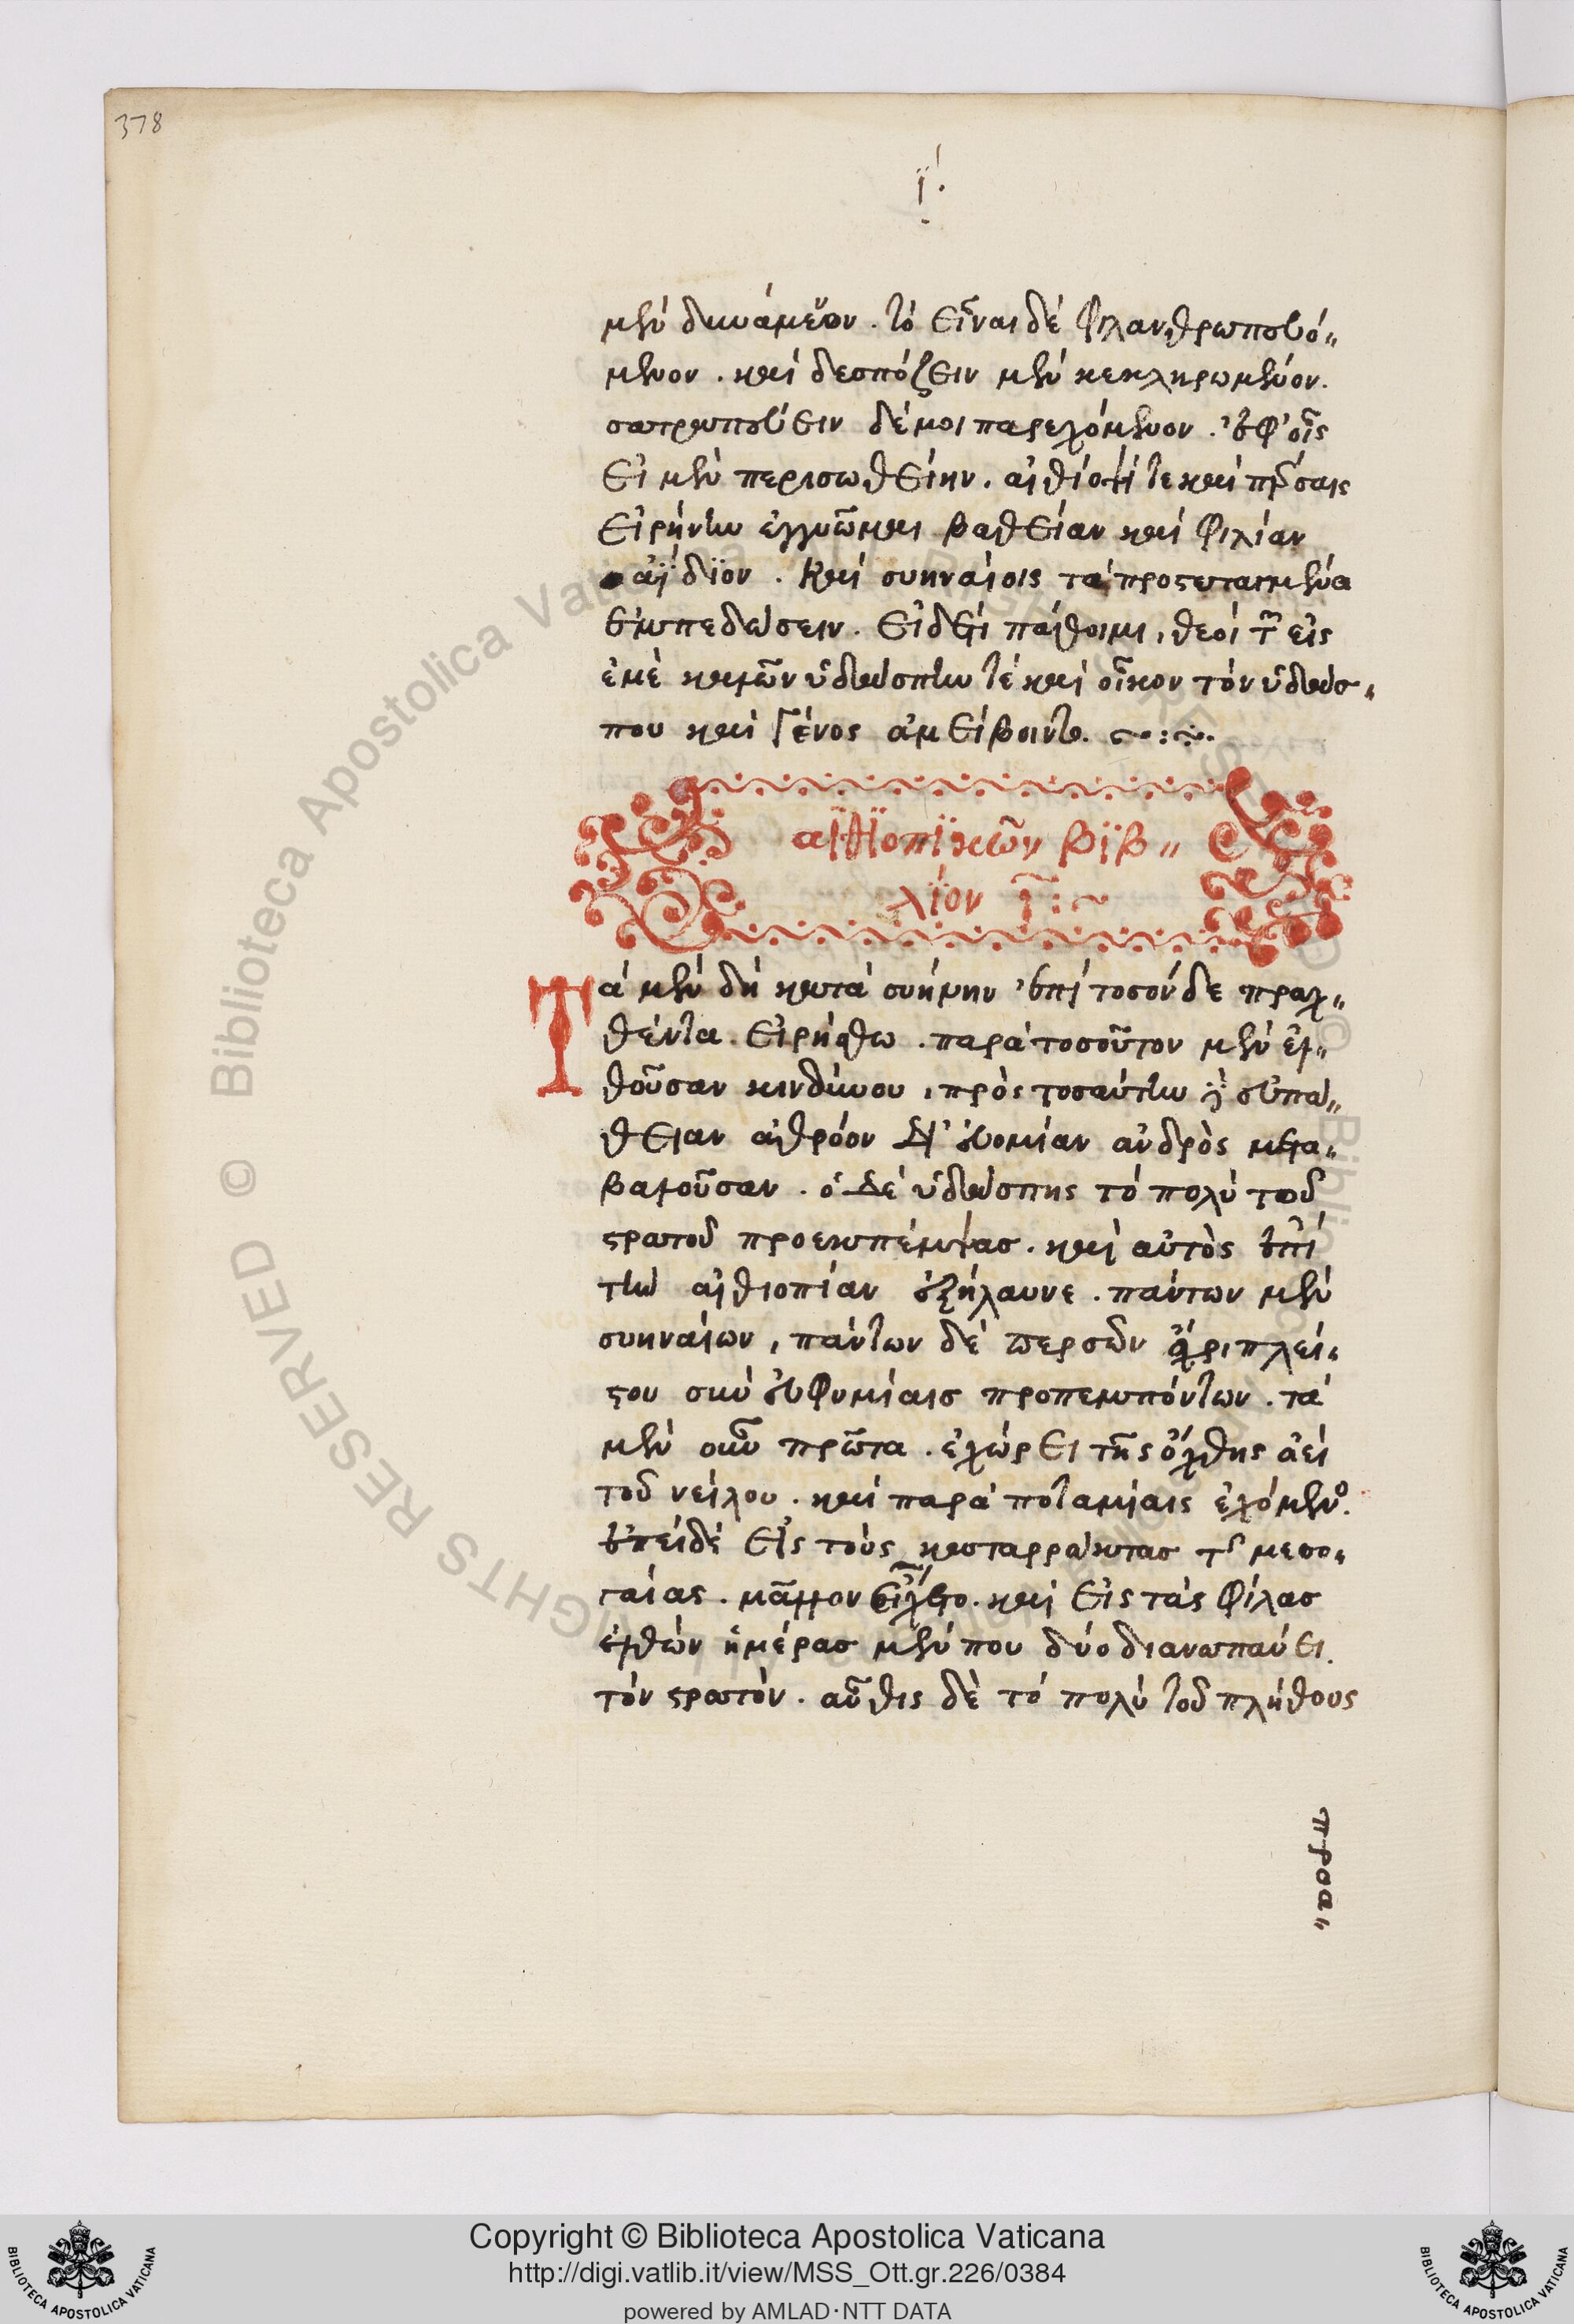 378
ΐ.
μὲν δυνάμενον. τὸ εἶναι δὲ φιλανθρωπευό„
μενον. καὶ δεσπόζειν μὲν κεκληρωμένον.
σατραπεύειν δέ μοι παρεχόμενον. ἐφ' οἷς
εἰ μὲν περισωθείην. αἰθίοψί τε καὶ πέρσαις
εἰρήνην ἐγγυῶμαι βαθεῖαν καὶ φιλίαν
ἀΐδϊον. καὶ συηναίοις τὰ προστεταγμένα
ἐμπεδώσειν. εἰ δέ τι πάθοιμι, θεοὶ τῶν εἰς
ἐμὲ καλῶν ὑδάσπην τὲ καὶ οἶκον τὸν ὑδάσ„
που καὶ γένος ἀμείβοιντο.
αἰθϊοπϊκῶν βϊβ„
λΐον ϊ:~
Τὰ μὲν δὴ κατὰ συήνην ἐπὶ τοσόνδε πραχ„
θέντα. εἰρήσθω. παρὰ τοσοῦτον μὲν ἐλ„
θοῦσαν κινδύνου, πρὸς τοσαύτην δὲ εὐπά„
θειαν ἀθρόον δι' εὐνομίαν ἀνδρὸς μετα„
βαλοῦσαν. ὁ δὲ ὑδάσπης τὸ πολὺ τοῦ
στρατοῦ προεκπέμψας. καὶ αὐτὸς ἐπὶ
τὴν αἰθιοπίαν ἐξήλαυνε. πάντων μὲν
συηναίων, πάντων δὲ περσῶν ἄχρι πλεί„
στου σὺν εὐφημίαις προπεμπόντων. τὰ
μὲν οὖν πρῶτα. ἐχώρει τῆς ὄχθης ἀεὶ
τοῦ νείλου. καὶ παρὰ ποταμίαις ἐχόμενος.
ἐπεὶ δὲ εἰς τοὺς καταρράκτας τῆς μεσο„
γαίας. μᾶλλον εἴχετο. καὶ εἰς τὰς φίλας
ἐλθὼν ἡμέρας μέν που δύο διαναπαύει.
τὸν στρατὸν. αὖθις δὲ τὸ πολὺ τοῦ πλήθους
προα„
Copyright © Biblioteca Apostolica Vaticana
http://digi.vatlib.it/view/MSS_Ott.gr.226/0384
powered by AMLAD·NTT DATA
BIBLIOTECA APOSTOLICA VATICANA
BIBLIOTECA APOSTOLICA VATICANA